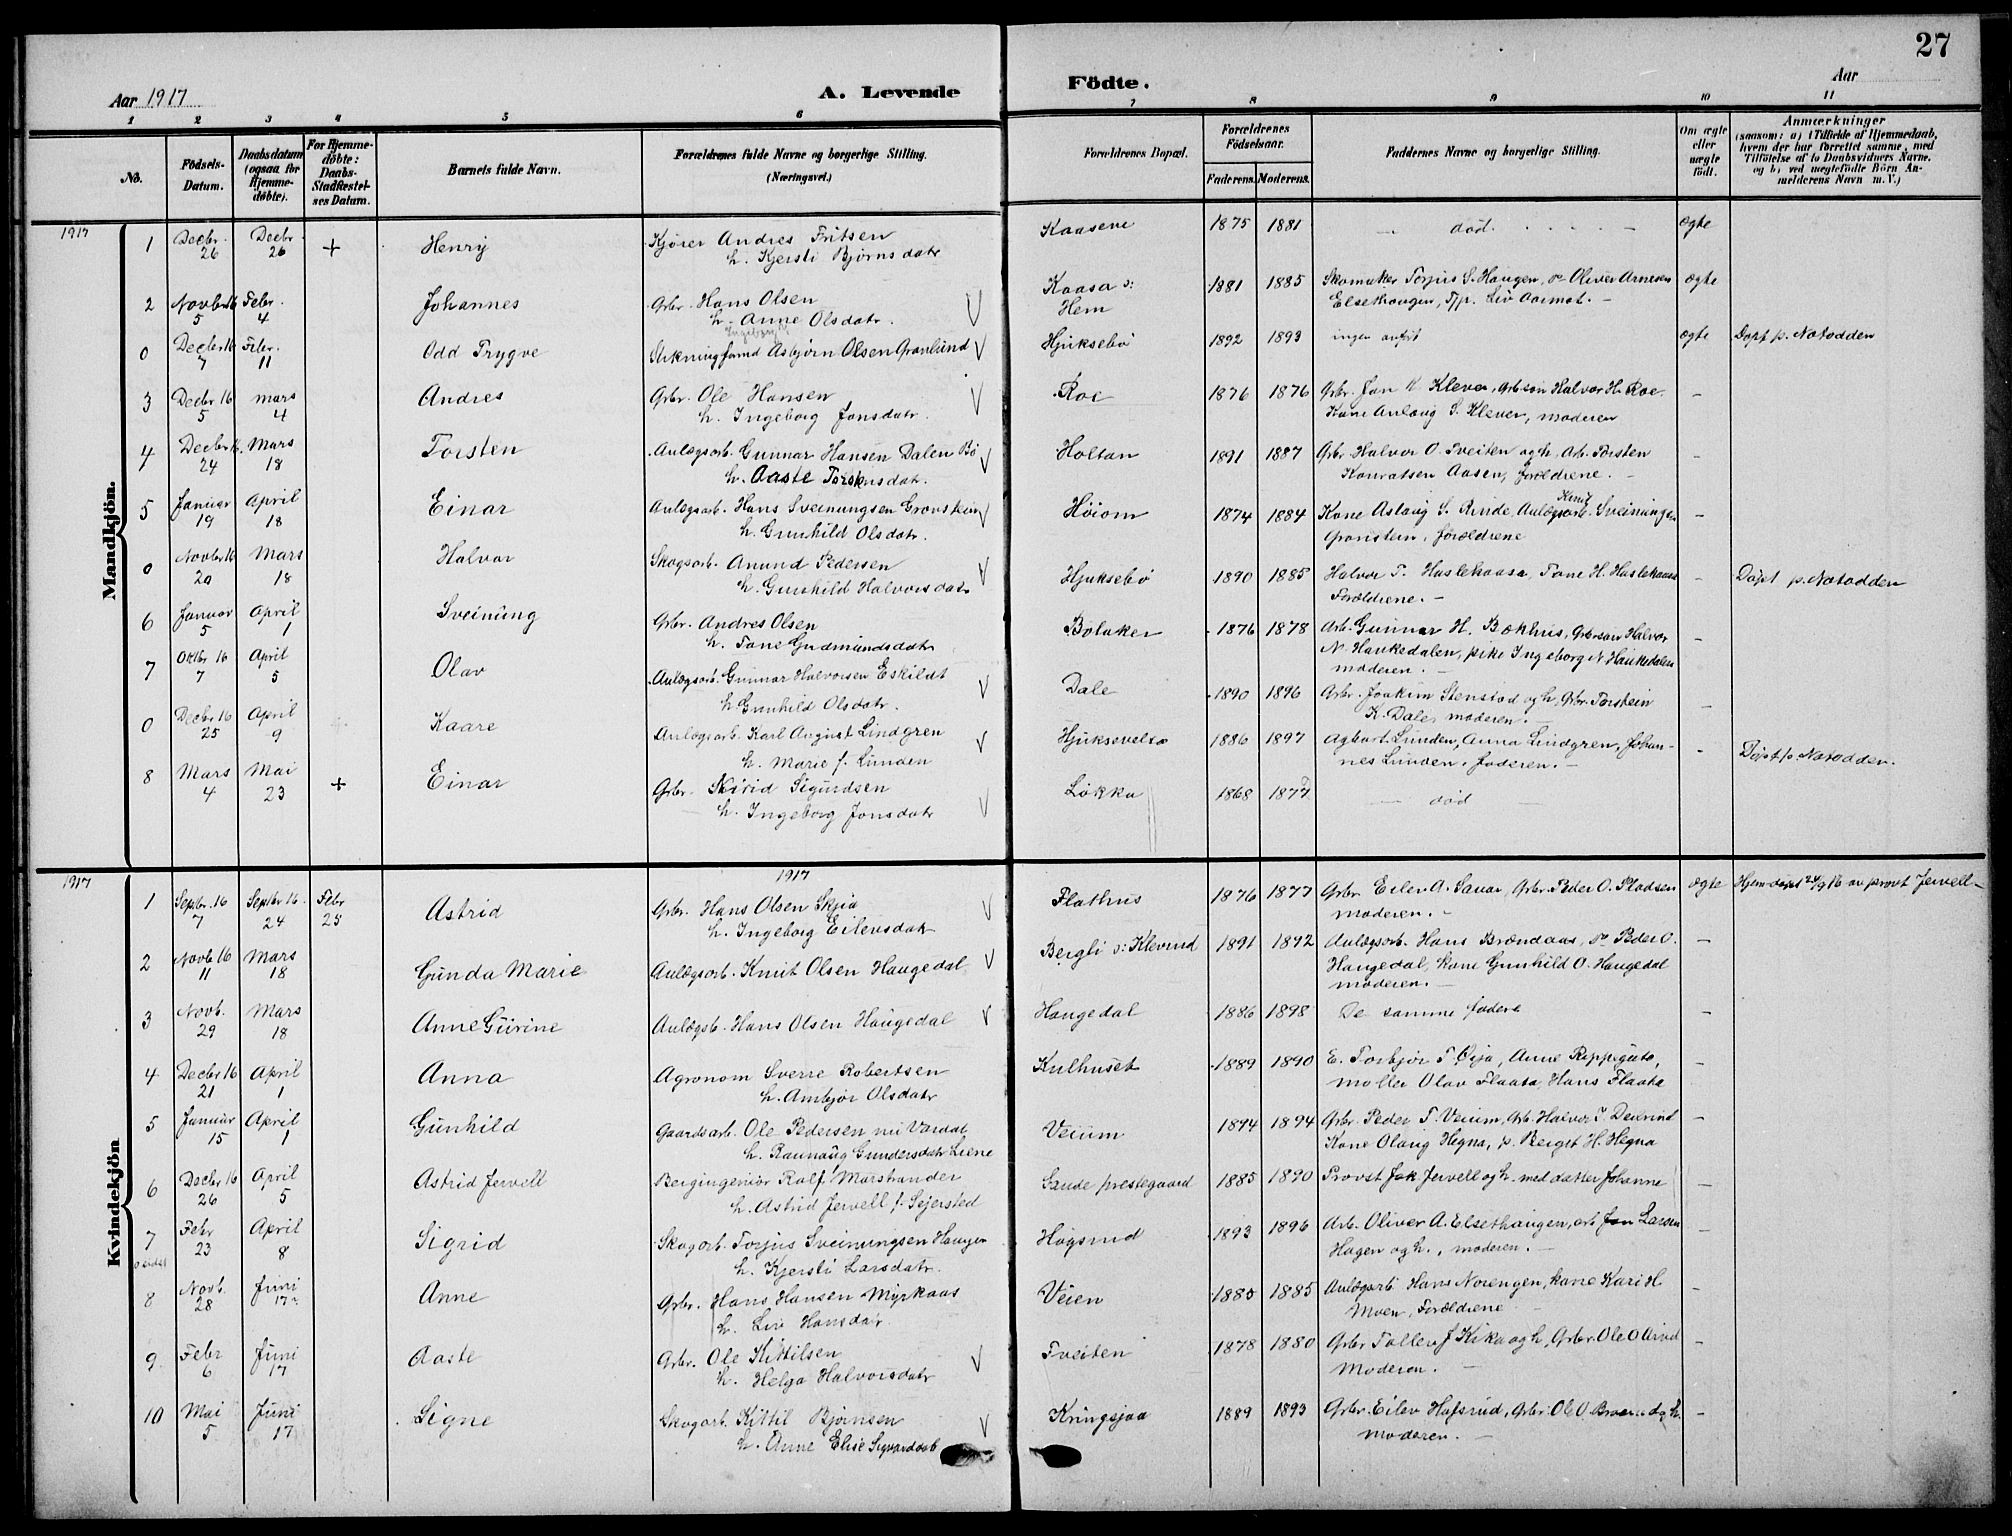 27
Aar 1917
A. Levende
Födte.
Aar
1 2 3 4 5 6 7 8 9 10 11
No.
Födsels-Datum.
Daabsdatum (ogsaa for Hjemme-döbte).
For Hjemme-döbte: Daabs-Stadfæstel-ses Datum.
Barnets fulde Navn.
Forældrenes fulde Navne og borgerlige Stilling. (Næringsvei.)
Forældrenes Bopæl.
Forældrenes Födselsaar.
Faderens. Moderens.
Faddernes Navne og borgerlige Stilling.
Om ægte eller uægte födt.
Anmærkninger (saasom: a) i Tilfælde af Hjemmedaab, hvem der har forrettet samme, med Tilföielse af to Daabsvidners Navne, og b) ved uægtefödte Börn An-melderens Navn m. V.)
Mandkjön.
1917
1 Decbr. 26 Decbr 26 + Henry Kjører Andres Fritsen Kaasene 1875 1881 død. ægte
h. Kjersti Bjørnsdatr
2 Novbr 16 5 Febr. 4 Johannes Grbr. Hans Olsen Kaasa o: Hem 1881 1885 Skomaker Torjus S. Haugen, Oliver Arnesen ægte
h. Anne Olsdatr. Elsethaugen, Liv Aarmot. -
0 Decbr 16 7 Febr. 11 Odd Trygve Asbjørn Olsen Granlund Hjuksebø 1892 1893 ingen anført ægte Døpt p. Notodden
3 Decbr 16 5 mars 4 Andres Grbr. Ole Hansen Roe 1876 1876 Grbr. Jon Klever, Grbsøn Halvor H. Roe -
h. Ingeborg Jonsdatr. Kone Anlaug S. Klever, moderen
4 Decbr 16. 24 Mars 18 Torsten Anlægsarb. Gunnar Hansen Dalen Bø Holtan 1891 1887 Grbr Halvor O. Tveiten og h, Arb. Torsten -
h. Aaste Torstensdatr. Konratsen Aasen, forældrene. -
5 Januar 19 April 18 Einar Anlægsarb. Hans Sveinungsen Grovstein Høiom 1874 1884 Kone Aslaug S. Rinde, Anlægsarb. Knut Sveinungsen -
h. Gunhild Olsdatr. forældrene
0 Novbr 16 20 Mars 18 Halvor Skogsarb. Anund Pedersen Hjuksebø 1890 1885 Halvor T. Haslekaasa, Tone H. Haslekaasa - Døpt p. Notodden
h. Gunhild Halvorsdatr Forældrene. -
6 Januar 5 April 1 Sveinung Grbr. Andres Olsen Bolaker 1876 1878 Arb. Gunnar H. Bækhus, Grbrsøn Halvor -
h. Tone Gudmundsdatr N. Haukedalen, pike Ingeborg N Haukedalen
moderen.
7 Oktbr 16 7 April 5 Olav Anlægsarb. Gunnar Halvorsen Eskildt Dale 1890 1896 Grbr. Joakim Stenstad og h, Grbr. Torstein -
h Gunhild Olsdatr. K. Dale, moderen. -
0 Decbr 16 25 April 9 Kaare Anlægsarb. Karl August Lindgren Hjuksevelta 1886 1897 Lunden, Anna Lindgren, Johan- - Døpt p. Notodden.
h. Marie f. Lunden nes Lunden. faderen. -
8 Mars 4 Mai 23 + Einar Grbr. Sigurdsen Løkka 1868 1877 død
h. Ingeborg Jonsdatr
Kvindekjön
1917
1917
1 Septbr. 16 7 Septbr 16. 24 Febr 25 Astrid Grbr. Hans Olsen Skjia Flathus 1876 1877 Grbr Eilev A. Sauar, Grbr. Peder O. Pladsen ægte Hjemdøpt 24/9 16 av provt Jervell-
h. Ingeborg Eilevsdatr moderen. -
2 Novb 16 11 Mars 18 Gunda Marie Anlægsarb. Knut Olsen Haugedal Bergli o: Klevrud 1891 1892 Anlægsarb. Hans Brændaas, Peder O. -
Haugedal, kone Gunhild O. Haugedal
moderen. -
3 Novb. 29 Mars 18 Anne Gurine Anlægsb. Hans Olsen Haugedal Haugedal 1886 1898 De samme faddere -
4 Decbr 16 21 April 1 Anna Agronom Sverre Robertsen Kulhuset 1889 1890 E. Torbjør T. Øija, Anne Rippiguto, -
h. Ambjør Olsdatr møller Olav Flaata, Hans Flaata
5 Januar 15 April 1 Gunhild Gaardsarb. Ole Pedersen Veium 1894 1894 Grbr. Peder T. Veium, Arb. Halvor -
h. Raunaug Gundersdatr Liene Kone Olaug Hegna, p. Bergit H. Hegna
6 Decbr 16 26 April 5 Astrid Jervell Bergingeniør Rolf Marstrander Saude prestegaard 1885 1890 Provst Jak Jervell og h. med datter Johanne -
h. Astrid Jervell f. Sejersted
7 Febr 23 April 8 Sigrid Skogarb. Torjus Sveinungsen Haugen Høgsrud 1893 1896 Arb. Oliver A. Elsethaugen, arb Jon Larsen -
h. Kjersti Larsdatr. Hagen og h., moderen. -
8 Novb. 28 Juni 17 Anne Grbr. Hans Hansen Myrkaas Veien 1885 1885 Anlægsarb Hans Norengen, kone Kari H. -
h. Liv Hansdatr. Moen, Forældrene
9 Febr 6 Juni 17 Aaste Grbr. Ole Kittilsen Tveiten 1878 1880 Grbr Tollev J Kika og h, Grbr. Ole O -
h. Helga Halvorsdatr Moderen. -
10 Mai 5 Juni 17 Signe Skogarb. Kittil Bjørnsen Kringsjaa 1889 1893 Grbr. Eilev Hafsrud, Grbr. Ole O. h. -
h. Anne Elise moderen. -